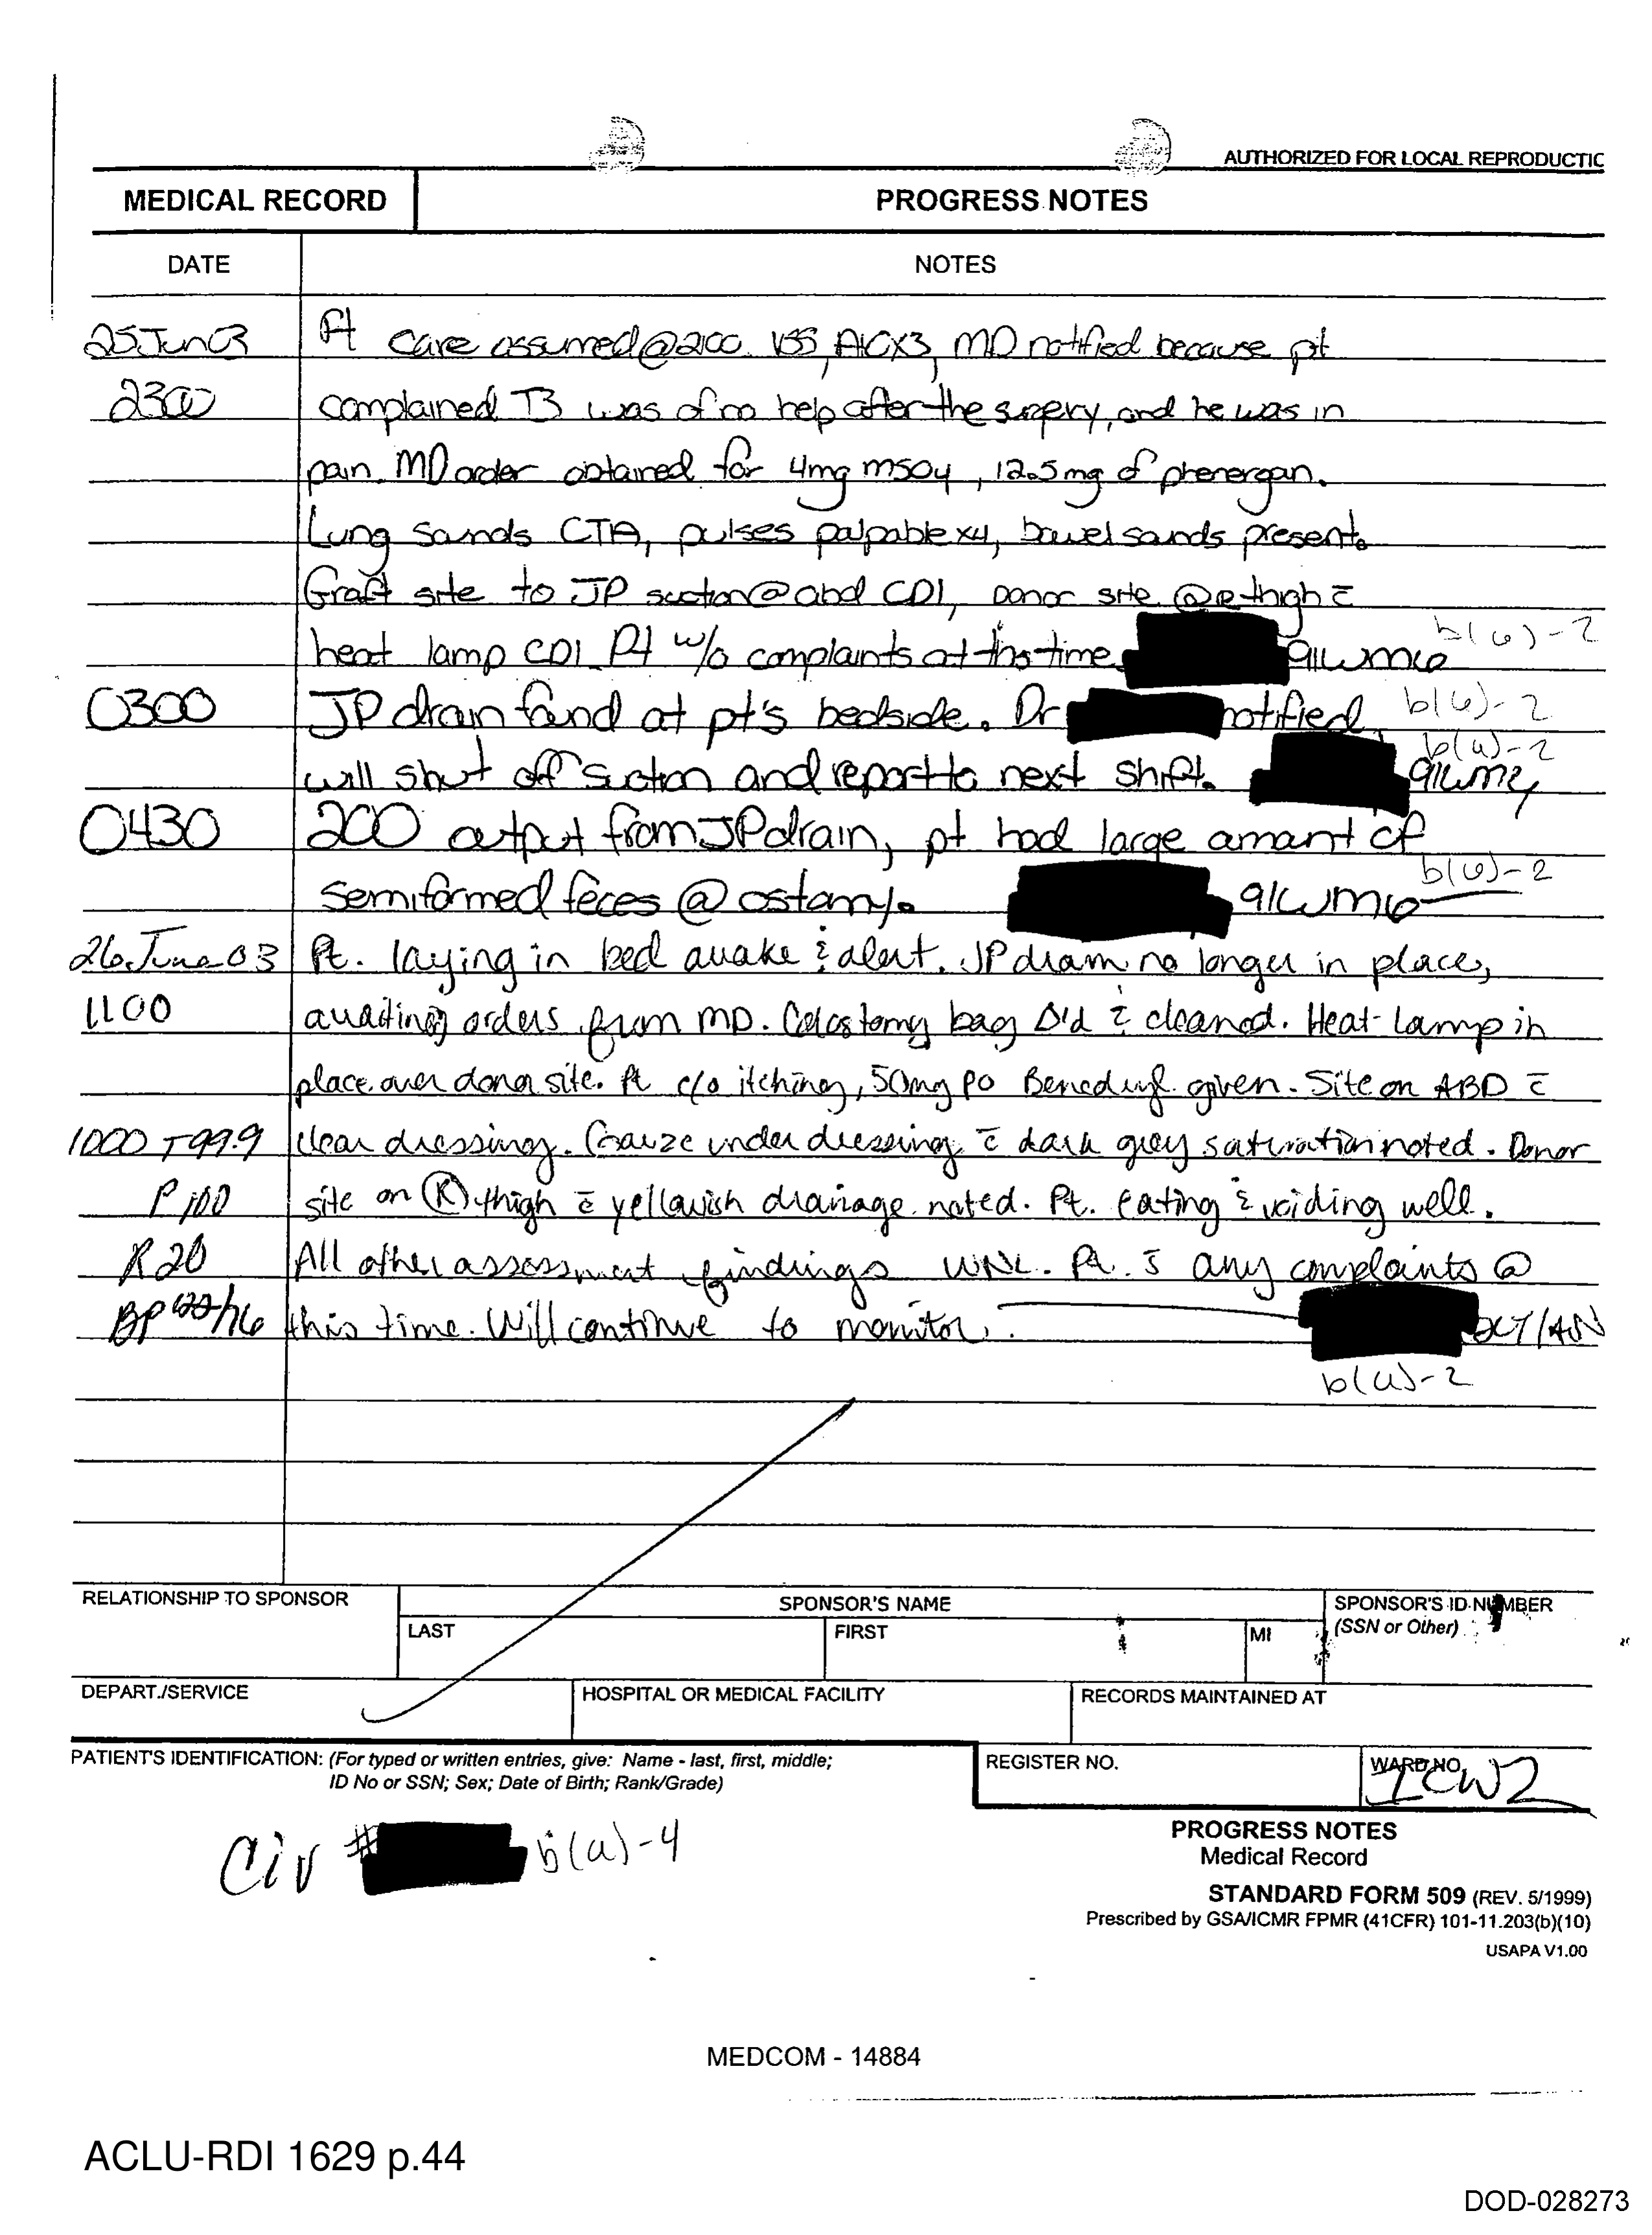 AUTHORIZED FOR LOCAL REPRODUCTIC
MEDICAL RECORD PROGRESS NOTES
DATE NOTES
25 Jun 03 Pt care assumed @ 2100. VSS, AOX3, MD notified because pt
2300 complained T3 was of no help after the surgery, and he was in
pain. MD order obtained for 4mg mso4, 12.5mg of phenergan.
Lung sounds CTA, pulses palpable x4, bowel sounds present.
Graft site to JP suction @ abd CDI, Donor site @ R thigh c̄
heat lamp CDI. Pt w/o complaints at this time 91wm6 b(6)-2
0300 JP drain found at pt's bedside. Dr notified, b(6)-2
will shut off suction and report to next shift. 91wm6 b(6)-2
0430 200 output from JP drain, pt had large amount of
semiformed feces @ ostomy. 91wm6 b(6)-2
26 June 03 Pt. laying in bed awake & alert. JP drain no longer in place,
1100 awaiting orders from MD. Colostomy bag Δ'd & cleaned. Heat Lamp in
place over donor site. Pt c/o itching, 50mg po Benedryl given. Site on ABD c̄
1000 T99.9 clear dressing. Gauze under dressing c̄ dark grey saturation noted. Donor
P 100 site on (R) thigh c̄ yellowish drainage noted. Pt. eating & voiding well.
R 20 All other assessment findings WNL. Pt. s̄ any complaints @
BP 122/76 this time. Will continue to monitor.
b(6)-2
RELATIONSHIP TO SPONSOR SPONSOR'S NAME SPONSOR'S ID NUMBER
LAST FIRST MI (SSN or Other)
DEPART./SERVICE HOSPITAL OR MEDICAL FACILITY RECORDS MAINTAINED AT
PATIENT'S IDENTIFICATION: (For typed or written entries, give: Name - last, first, middle;
ID No or SSN; Sex; Date of Birth; Rank/Grade)
REGISTER NO. WARD NO. ICW2
Civ # b(6)-4
PROGRESS NOTES
Medical Record
STANDARD FORM 509 (REV. 5/1999)
Prescribed by GSA/ICMR FPMR (41CFR) 101-11.203(b)(10)
USAPA V1.00
MEDCOM - 14884
ACLU-RDI 1629 p.44
DOD-028273